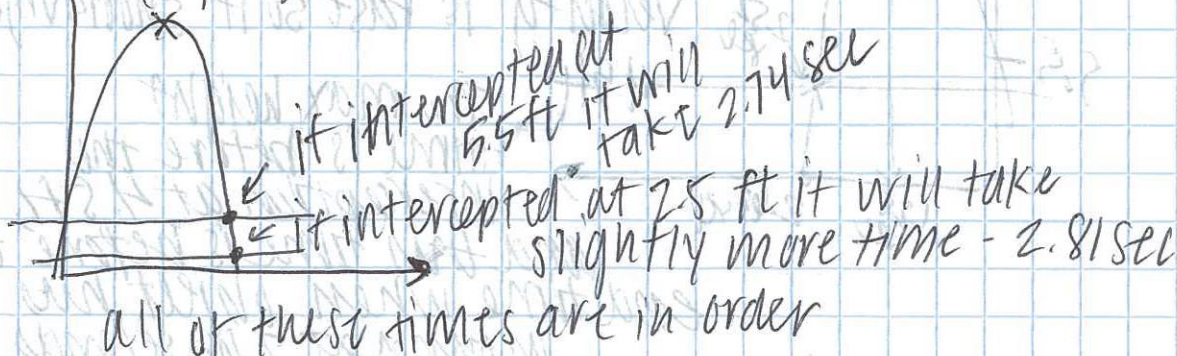 if intercepted at
5.5ft it will
take 2.74 sec
if intercepted at 2.5 ft it will take
slightly more time - 2.81 sec
all of these times are in order